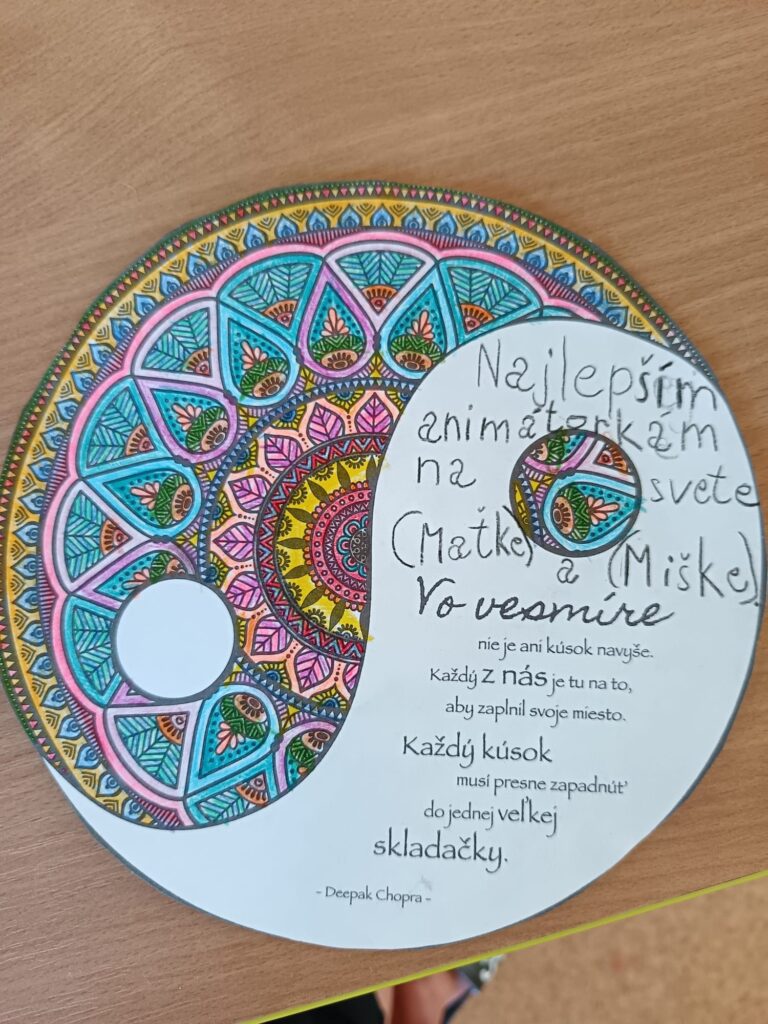 Najlepším
animátorkám
na svete
(Maťke) a (Miške).
Vo vesmíre
nie je ani kúsok navyše.
Každý z nás je tu na to,
aby zaplnil svoje miesto.
Každý kúsok
musí presne zapadnúť
do jednej veľkej
skladačky.
- Deepak Chopra -